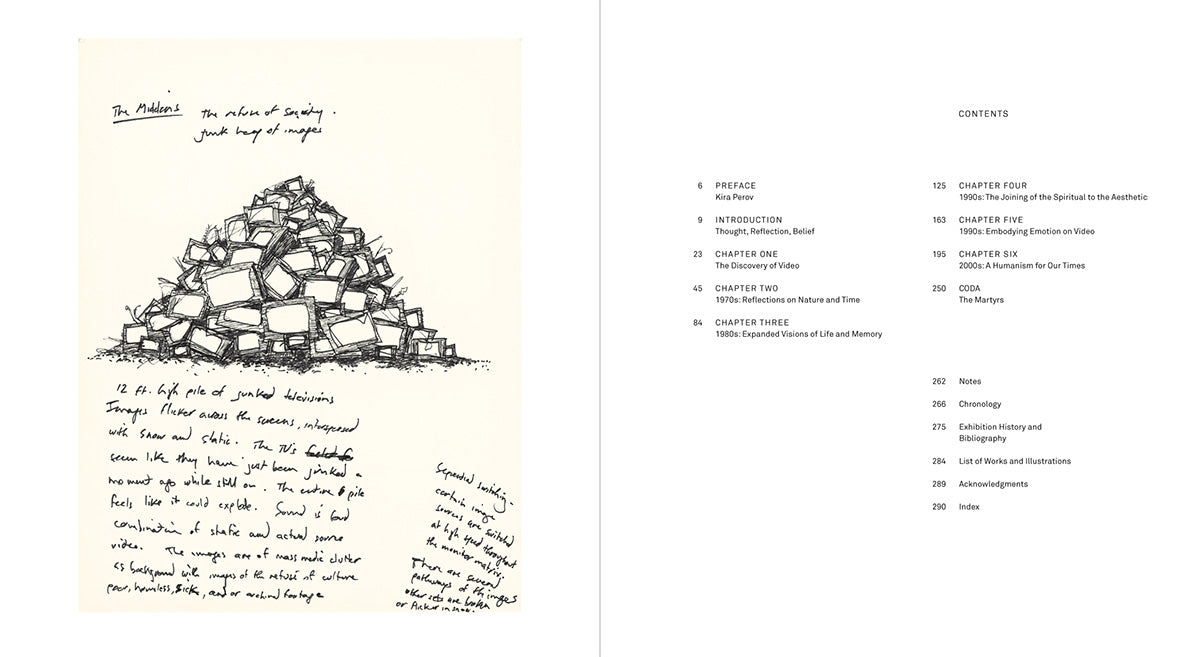 The Middens
the refuse of society.
junk heap of images
12 ft. high pile of junked televisions
Images flicker across the screens, interspersed
with snow and static. The TV's
seem like they have just been junked a
moment ago while still on. The entire pile
feels like it could explode. Sound is loud
combination of static and actual source
video. The images are of mass media clutter
as background with images of the refuse of culture
poor, homeless, sick, and or archival footage
Sequential switching.
certain image
sources are switched
at high speed throughout
the monitor matrix.
There are several
pathways of images
other sets are broken
or flicker in snow.
CONTENTS
6 PREFACE
Kira Perov
9 INTRODUCTION
Thought, Reflection, Belief
23 CHAPTER ONE
The Discovery of Video
45 CHAPTER TWO
1970s: Reflections on Nature and Time
84 CHAPTER THREE
1980s: Expanded Visions of Life and Memory
125 CHAPTER FOUR
1990s: The Joining of the Spiritual to the Aesthetic
163 CHAPTER FIVE
1990s: Embodying Emotion on Video
195 CHAPTER SIX
2000s: A Humanism for Our Times
250 CODA
The Martyrs
262 Notes
266 Chronology
275 Exhibition History and
Bibliography
284 List of Works and Illustrations
289 Acknowledgments
290 Index